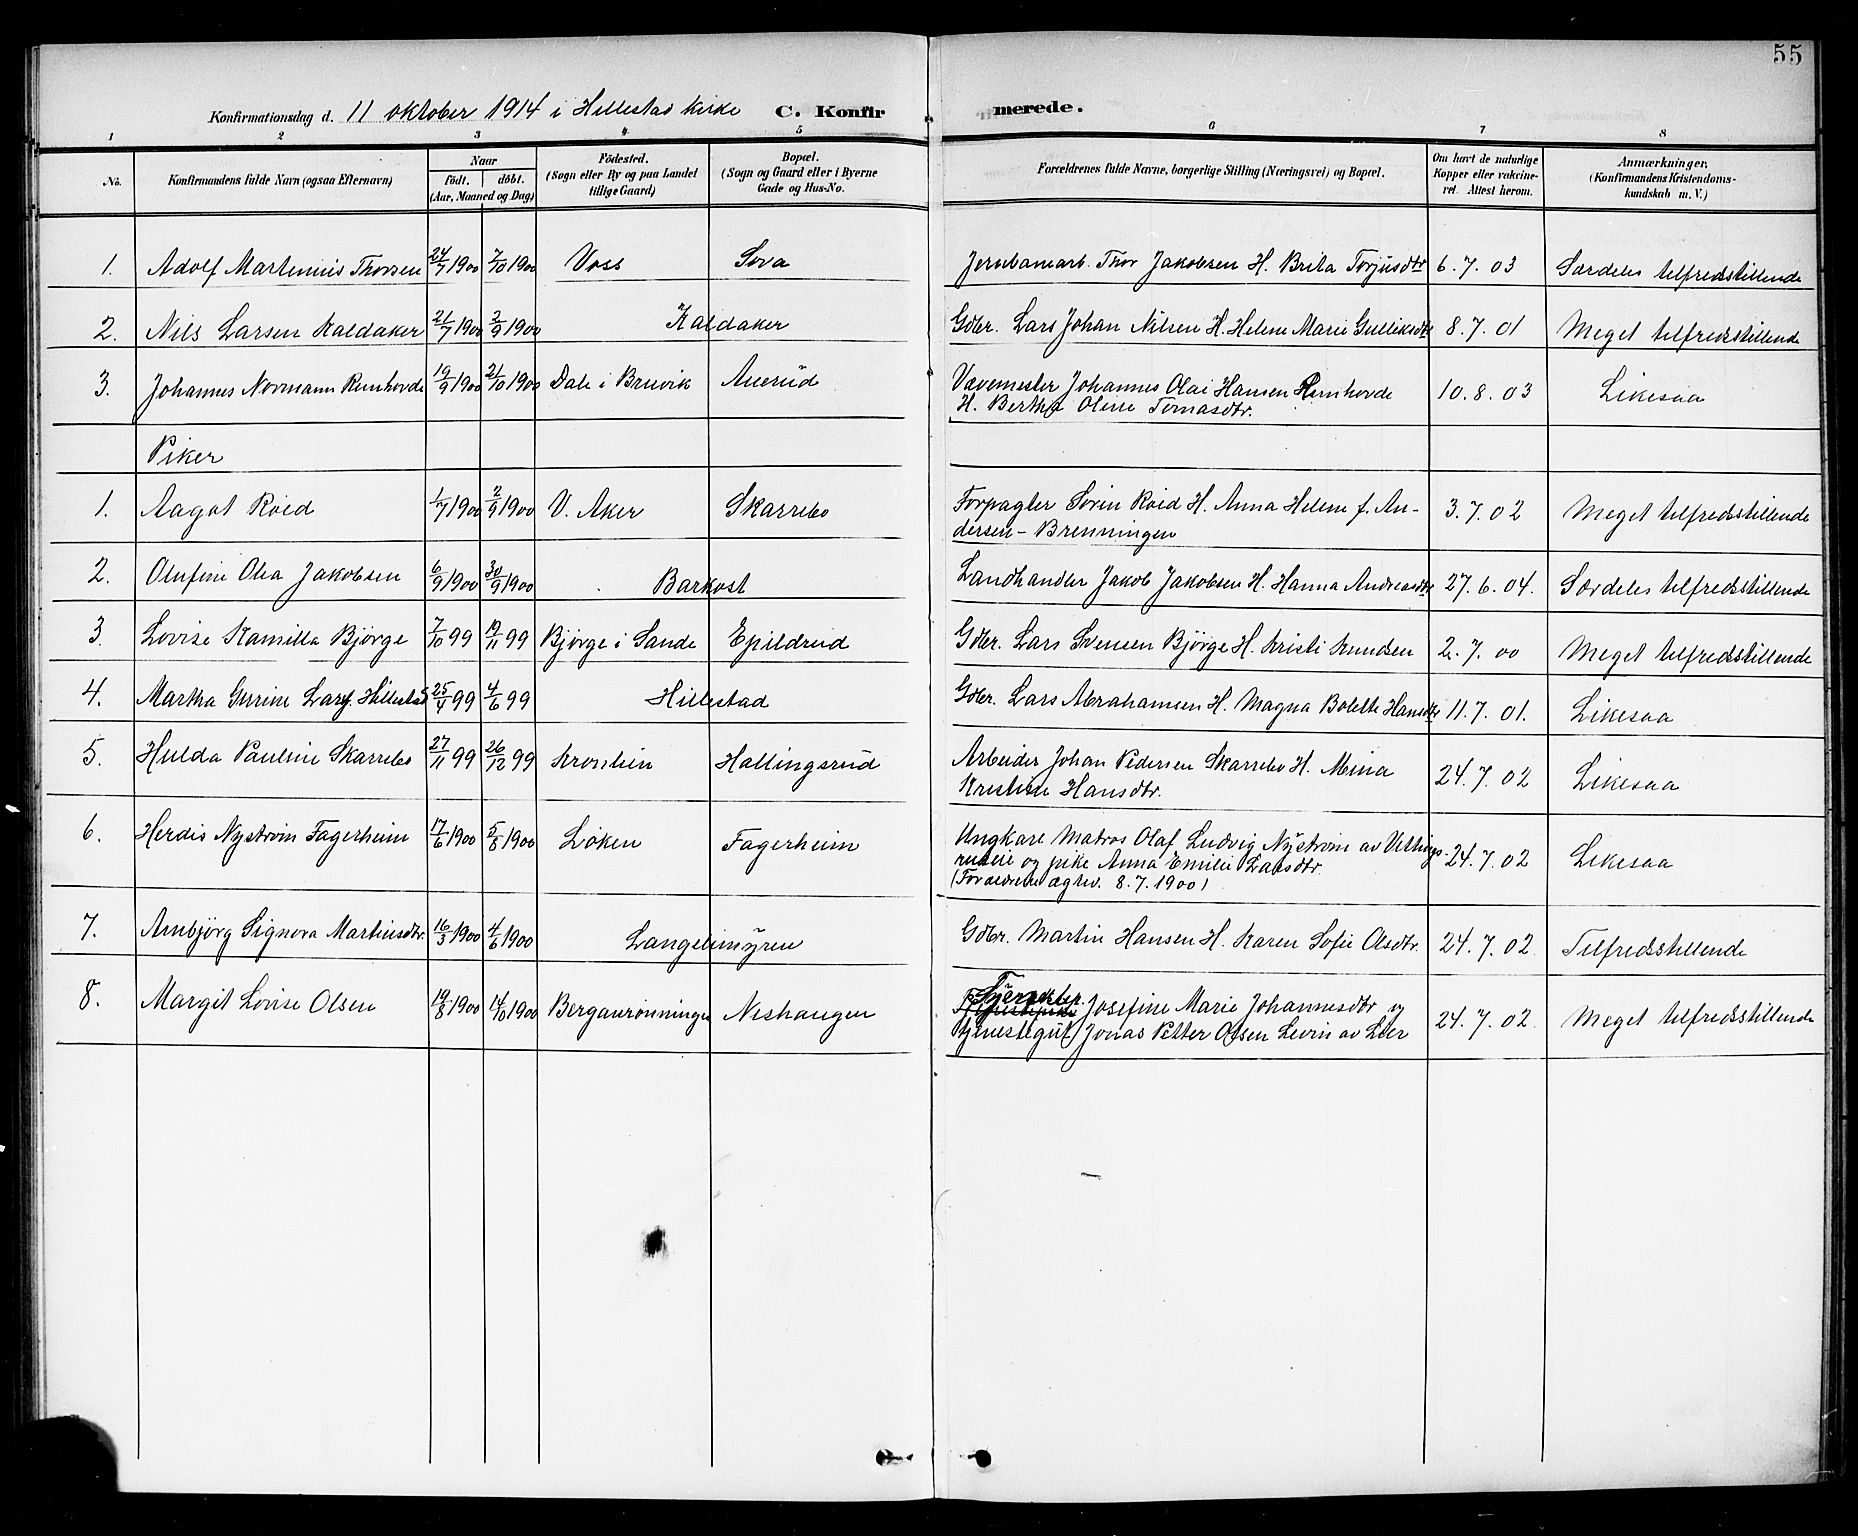 55
Konfirmationsdag d. 11 oktober 1914 i Hillestad kirke C. Konfirmerede.
1 2 3 4 5 6 7 8
No.
Konfirmandens fulde Navn (ogsaa Efternavn)
Naar
födt. döbt.
(Aar, Maaned og Dag)
Födested.
(Sogn eller By og paa Landet
tillige Gaard)
Bopæl.
(Sogn og Gaard eller i Byerne
Gade og Hus-No.
Forældrenes fulde Navne, borgerlige Stilling (Næringsvei) og Bopæl.
Om havt de naturlige
Kopper eller vakcine-
ret. Attest herom.
Anmærkninger,
(Konfirmandens Kristendoms-
kundskab m. V.)
1. Adolf Martinius Thorsen 24/7 1900 7/10 1900 Voss Sova Jernbanearb. Thor Jakobsen H. Brita Torjusdtr 6.7.03 Særdeles tilfredstillende
2. Nils Larsen Kaldaker 21/7 1900 2/9 1900 Kaldaker Gdbr. Lars Johan Nilsen H. Helene Marie Gulliksdtr 8.7.01 Meget tilfredsstillende
3. Johannes Normann Remhovde 19/9 1900 21/10 1900 Dale i Bruvik Auerud Vævemester Johannes Olai Hansen Remhovde 10.8.03 Likesaa
H. Bertha Oline Tomasdtr.
Piker
1. Aagot Roed 1/7 1900 2/9 1900 V. Aker Skarrebo Forpagter Sorin Roed H. Anna Helene f. An- 3.7.02 Meget tilfredsstillende
dersen - Brenningen
2. Olufine Olea Jakobsen 6/9 1900 30/9 1900 Barkost Landhandler Jakob Jakobsen H. Hanna Andreasdtr 27.6.04. Særdeles tilfredsstillende
3. Lovise Kamilla Björge 7/10 99 19/11 99 Björge i Sande Epildrud Gdbr. Lars Svensen Björge H. Kristi Knudsen 2.7.00 Meget tilfredsstillende
4. Martha Gurine Larsd. Hillestad 25/4 99 4/6 99 Hillestad Gdbr. Lars Abrahamsen H. Magna Bolette Hansdtr 11.7.01. Likesaa
5. Hulda Pauline Skarrebo 27/11 99 26/12 99 Kronlien Hallingsrud Arbeider Johan Pedersen Skarrebo H. Mina 24.7.02 Likesaa
Kristine Hansdtr.
6. Herdis Nyström Fagerheim 17/6 1900 5/8 1900 Løken Fagerheim Ungkare Matros Olaf Ludvig Nyström av 24.7.02 Likesaa
og pike Anna Emilie Larsdtr.
(Forældrene ægtev. 8.7.1900)
7. Arnbjörg Signora Martinsdtr. 16/3 1900 4/6 1900 Langelimyren Gdbr. Martin Hansen H. Karen Sofie Olsdtr. 24.7.02 Tilfredsstillende
8. Margit Lovise Olsen 19/8 1900 14/10 1900 Berganrönningen Neshaugen Josefine Marie Johannesdtr og 24.7.02. Meget tilfredsstillende
tjenestegut Jonas Petter Olsen Levin av Leer